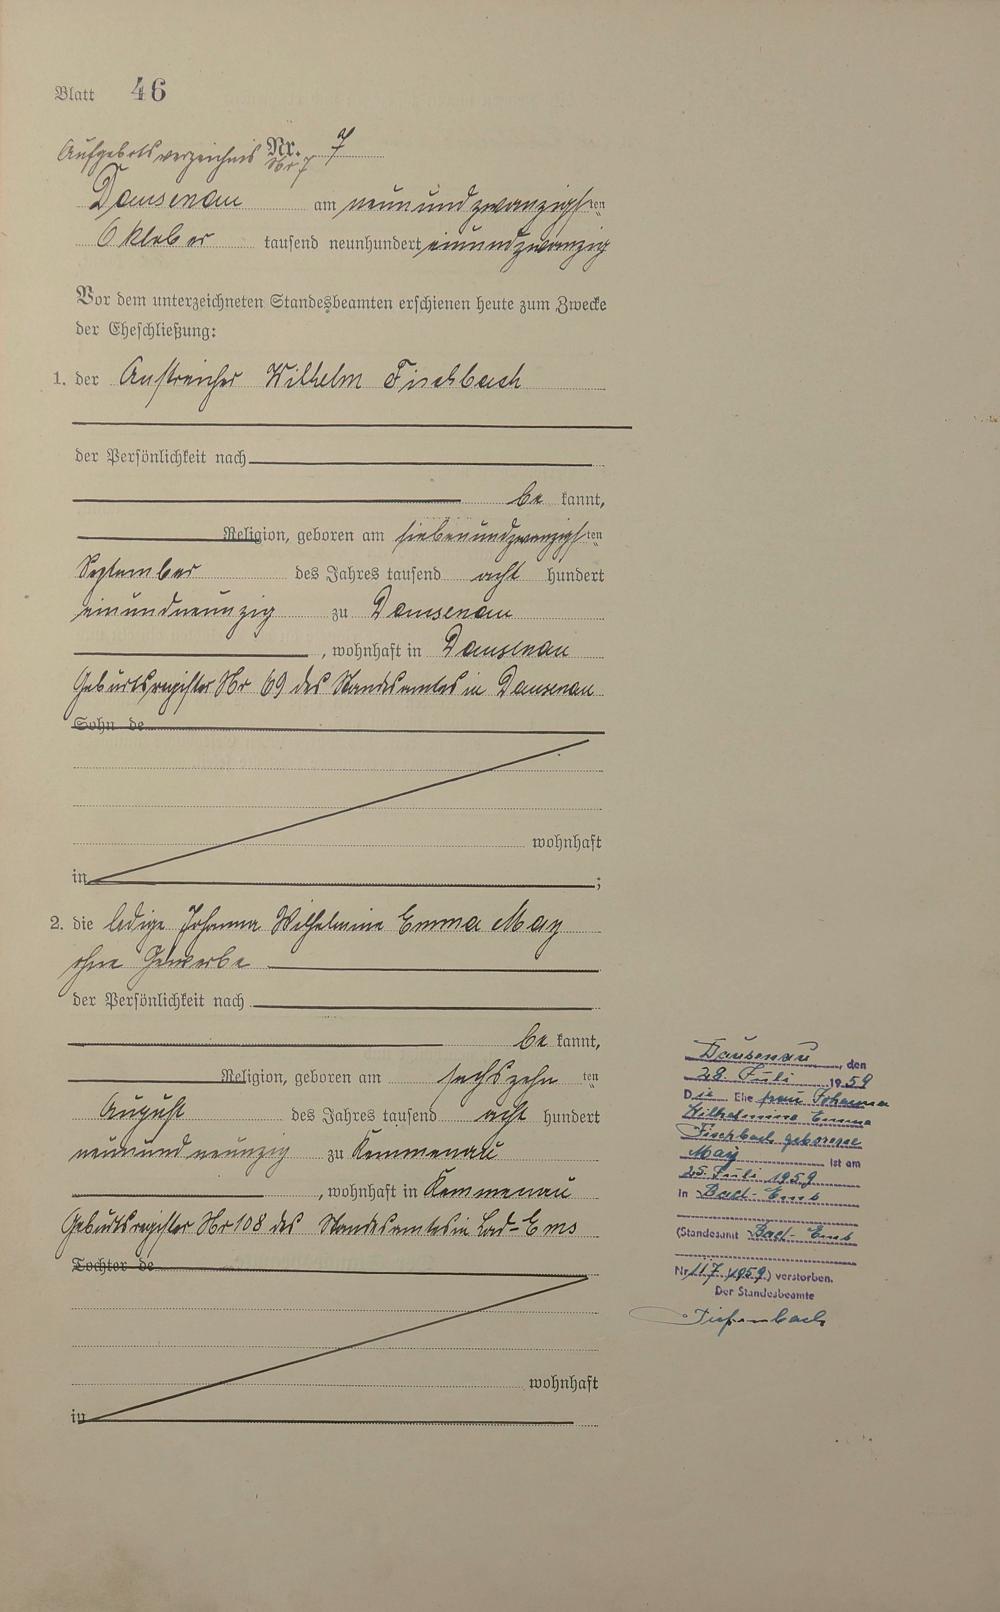 Blatt 46
Aufgebotsverzeichnis Nr. 7
Nr 7
Dausenau am neunundzwanzigsten
Oktober tausend neunhundert einundzwanzig
Vor dem unterzeichneten Standesbeamten erschienen heute zum Zwecke
der Eheschließung:
1. der Anstreicher Wilhelm Fischbach
der Persönlichkeit nach
be kannt,
Religion, geboren am siebenundzwanzigsten
September des Jahres tausend acht hundert
einundneunzig zu Dausenau
, wohnhaft in Dausenau
Geburtsregister Nr 69 des Standesamtes in Dausenau
Sohn de
wohnhaft
in ;
2. die ledige Johanna Wilhelmine Emma May
ohne Gewerbe
der Persönlichkeit nach
be kannt,
Religion, geboren am sechszehn ten
August des Jahres tausend acht hundert
neunundneunzig zu Kemmenau
, wohnhaft in Kemmenau
Geburtsregister Nr 108 des Standesamtes in Bad-Ems
Tochter de
wohnhaft
in
Dausenau, den
28. Juli 1959
Die Ehefrau Johanna
Wilhelmine Emma
Fischbach geborene
May ist am
25. Juli 1959
in Bad-Ems
(Standesamt Bad-Ems
Nr. 117/1959) verstorben.
Der Standesbeamte
Tiefenbach